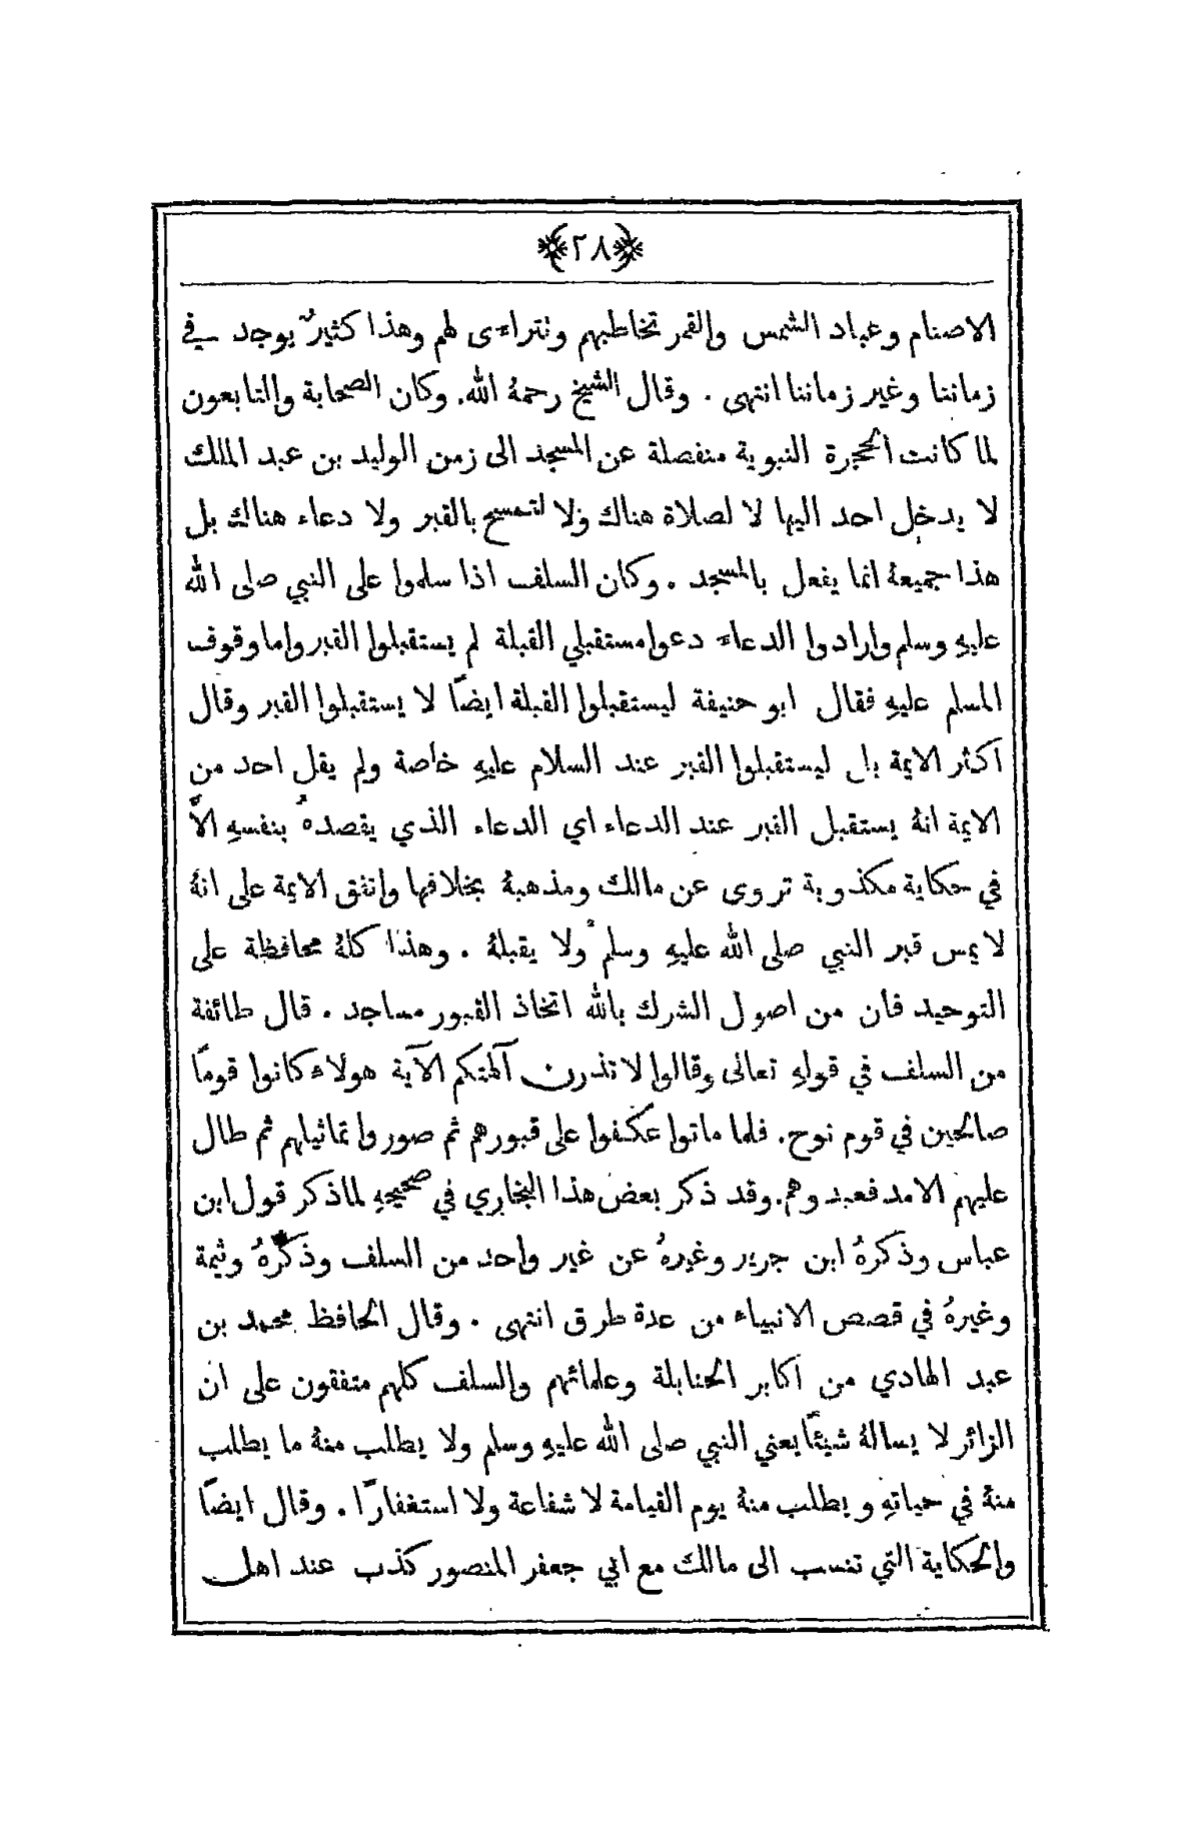 ﴿٢٨﴾
الاصنام وعباد الشمس والقمر تخاطبهم ونتراءى لهم وهذا كثيرٌ يوجد في
زماننا وغير زماننا انتهى . وقال الشيخ رحمهُ الله. وكان الصحابة والتابعون
لما كانت الحجرة النبوية منفصلة عن المسجد الى زمن الوليد بن عبد الملك
لا يدخل احد اليها لا لصلاة هناك ولا لتمسح بالقبر ولا دعاء هناك بل
هذا جميعهُ انما يفعل بالمسجد . وكان السلف اذا سلموا على النبي صلى الله
عليهِ وسلم وارادوا الدعاء دعوا مستقبلي القبلة لم يستقبلوا القبر واما وقوف
المسلم عليهِ فقال ابو حنيفة ليستقبلوا القبلة ايضًا لا يستقبلوا القبر وقال
اكثر الايمة بل ليستقبلوا القبر عند السلام عليهِ خاصة ولم يقل احد من
الايمة انهُ يستقبل القبر عند الدعاء اي الدعاء الذي يقصدهُ بنفسهِ الاَّ
في حكاية مكذوبة تروى عن مالك ومذهبهُ بخلافها واتفق الايمة على انهُ
لا يمس قبر النبي صلى الله عليهِ وسلم ولا يقبلهُ . وهذا كلهُ محافظة على
التوحيد فان من اصول الشرك بالله اتخاذ القبور مساجد . قال طائفة
من السلف في قولهِ تعالى وقالوا لا تذرن آلهتكم الآية هولاء كانوا قومًا
صالحين في قوم نوح. فلما ماتوا عكفوا على قبورهم ثم صوروا تماثيلهم ثم طال
عليهم الامد فعبدوهم. وقد ذكر بعض هذا البخاري في صحيحهِ لما ذكر قول ابن
عباس وذكرهُ ابن جرير وغيرهُ عن غير واحد من السلف وذكرهُ وثيمة
وغيرهُ في قصص الانبياء من عدة طرق انتهى . وقال الحافظ محمد بن
عبد الهادي من اكابر الحنابلة وعلمائهم والسلف كلهم متفقون على ان
الزائر لا يسالهُ شيئًا يعني النبي صلى الله عليهِ وسلم ولا يطلب منهُ ما يطلب
منهُ في حياتهِ ويطلب منهُ يوم القيامة لا شفاعة ولا استغفارًا . وقال ايضًا
والحكاية التي تنسب الى مالك مع ابي جعفر المنصور كذب عند اهل